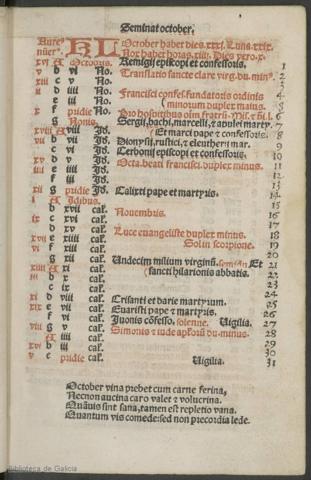 Seminat october.
Aure⁹ KL October habet dies .xxxj. Luna .xxix.
nūer⁹. Nox habet horas .xiiij. Dies vero .x.
xvj A Octobris. Remigij episcopi et confessoris. 1
v b vj No. Translatio sancte clare virg. du. min⁹. 2
xiij c v No. 3
ij d iiij No. Francisci confes. fundatoris ordinis 4
e iij No. minorum duplex maius. 5
x f pridie No. 6
g Nonis. Sergij, bachi, marcelli, ⁊ apulei martyr. 7
xviij A viij Jd. Et marci pape ⁊ confessoris. 8
vij b vij Jd. Dionysij, rustici, ⁊ eleutherij mar. 9
c vj Jd. Cerbonij episcopi et confessoris. 10
xv d v Jd. Octa. beati francisci. duplex minus. 11
iiij e iiij Jd. 12
f iij Jd. 13
xij g pridie Jd. Calixti pape et martyris. 14
j A Jdibus. 15
b xvij cal. Nouembris. 16
ix c xvj cal. 17
d xv cal. Luce euangeliste duplex minus. 18
xvij e xiiij cal. Sol in scorpione. 19
vj f xiij cal. 20
g xij cal. Undecim milium virginū. semidū. Et 21
xiiij A xj cal. sancti hilarionis abbatis. 22
iij b x cal. 23
c ix cal. 24
xj d viij cal. Crisanti et darie martyrum. 25
e vij cal. Euaristi pape ⁊ martyris. 26
xix f vj cal. Juonis cōfesso. solenne. Uigilia. 27
viij g v cal. Simonis ⁊ iude apl'orū du. minus. 28
A iiij cal. 29
xvj b iij cal. 30
v c pridie cal. Uigilia. 31
October vina prebet cum carne ferina,
Necnon aucina caro valet ⁊ volucrina.
Quāuis sint sana, tamen est repletio vana.
Quantum vis comede: sed non precordia lede.
Biblioteca de Galicia